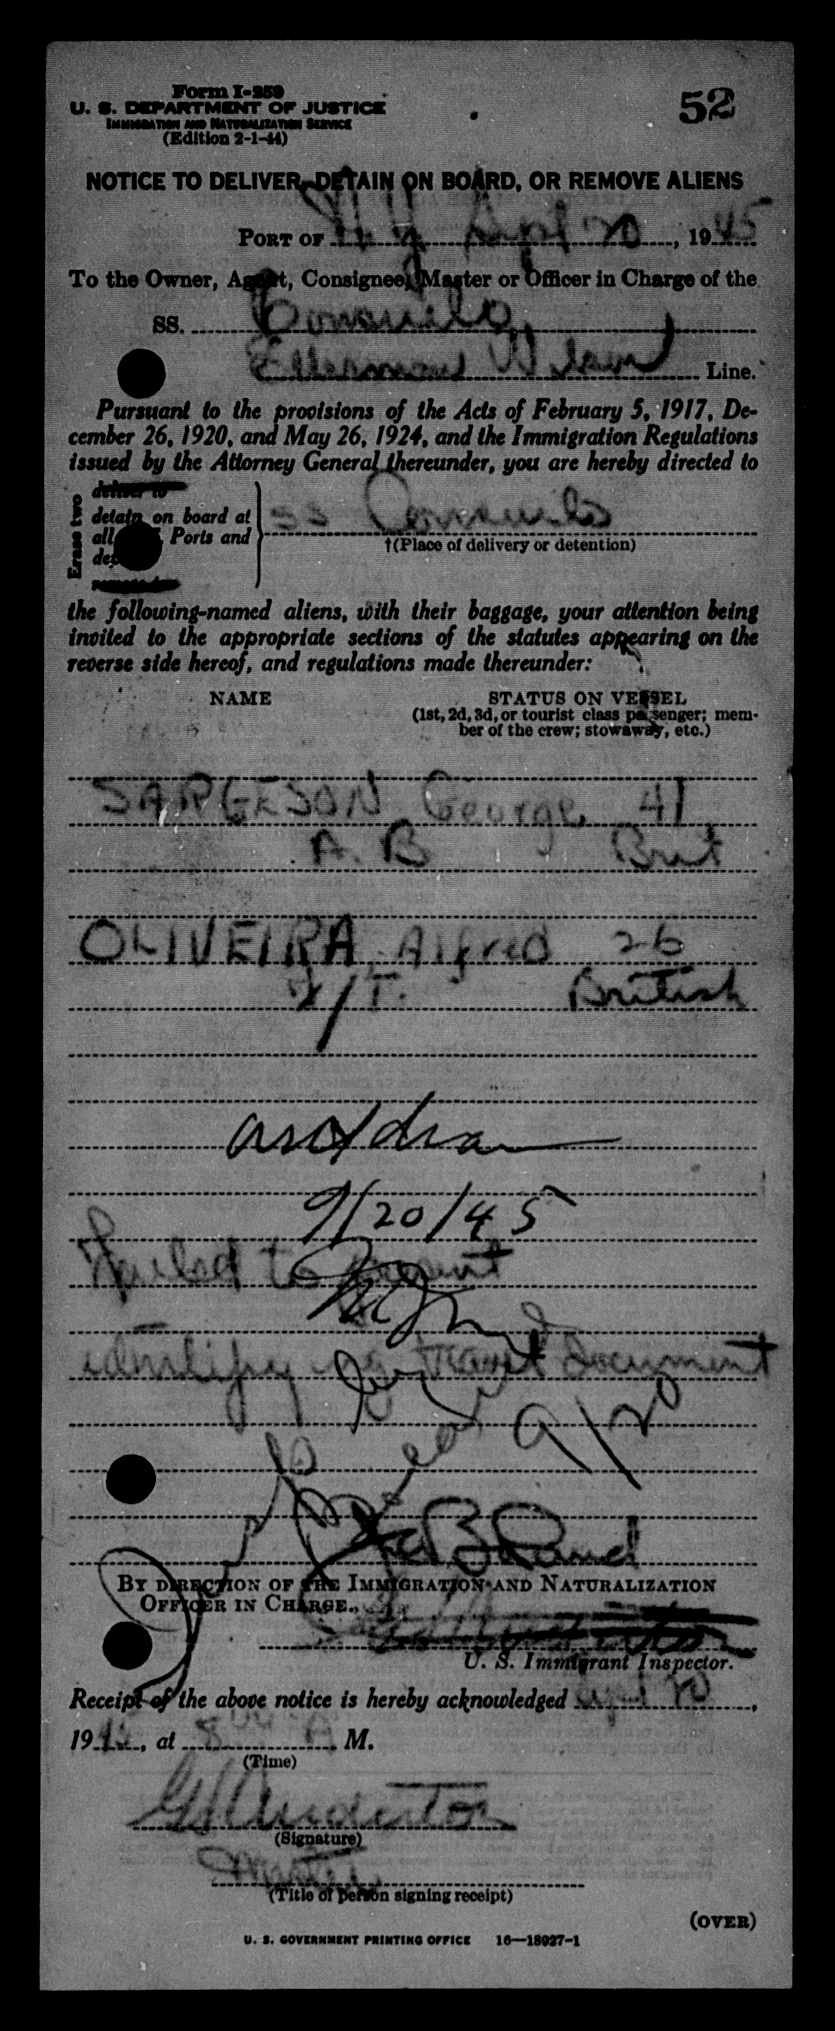 Form I-259
52
U. S. DEPARTMENT OF JUSTICE
IMMIGRATION AND NATURALIZATION SERVICE
(Edition 2-1-44)
NOTICE TO DELIVER, DETAIN ON BOARD, OR REMOVE ALIENS
PORT OF N. Y. Sept 20, 1945
To the Owner, Agent, Consignee, Master or Officer in Charge of the
SS. Consuelo,
Ellerman Wilson Line.
Pursuant to the provisions of the Acts of February 5, 1917, De-
cember 26, 1920, and May 26, 1924, and the Immigration Regulations
issued by the Attorney General thereunder, you are hereby directed to
Erase two
deliver to
detain on board at
all Ports and
SS Consuelo
†(Place of delivery or detention)
the following-named aliens, with their baggage, your attention being
invited to the appropriate sections of the statutes appearing on the
reverse side hereof, and regulations made thereunder:
NAME STATUS ON VESSEL
(1st, 2d, 3d, or tourist class passenger; mem-
ber of the crew; stowaway, etc.)
SARGESON George 41
A. B Brit
OLIVEIRA, Alfred 26
/T. British
9/20/45
Failed to present
identifying travel document
9/20
BY DIRECTION OF THE IMMIGRATION AND NATURALIZATION
OFFICER IN CHARGE.
U. S. Immigrant Inspector.
Receipt of the above notice is hereby acknowledged Sept 20,
1945, at 8 A. M.
(Time)
G Anderton
(Signature)
Master
(Title of person signing receipt)
(OVER)
U. S. GOVERNMENT PRINTING OFFICE 16—18927-1